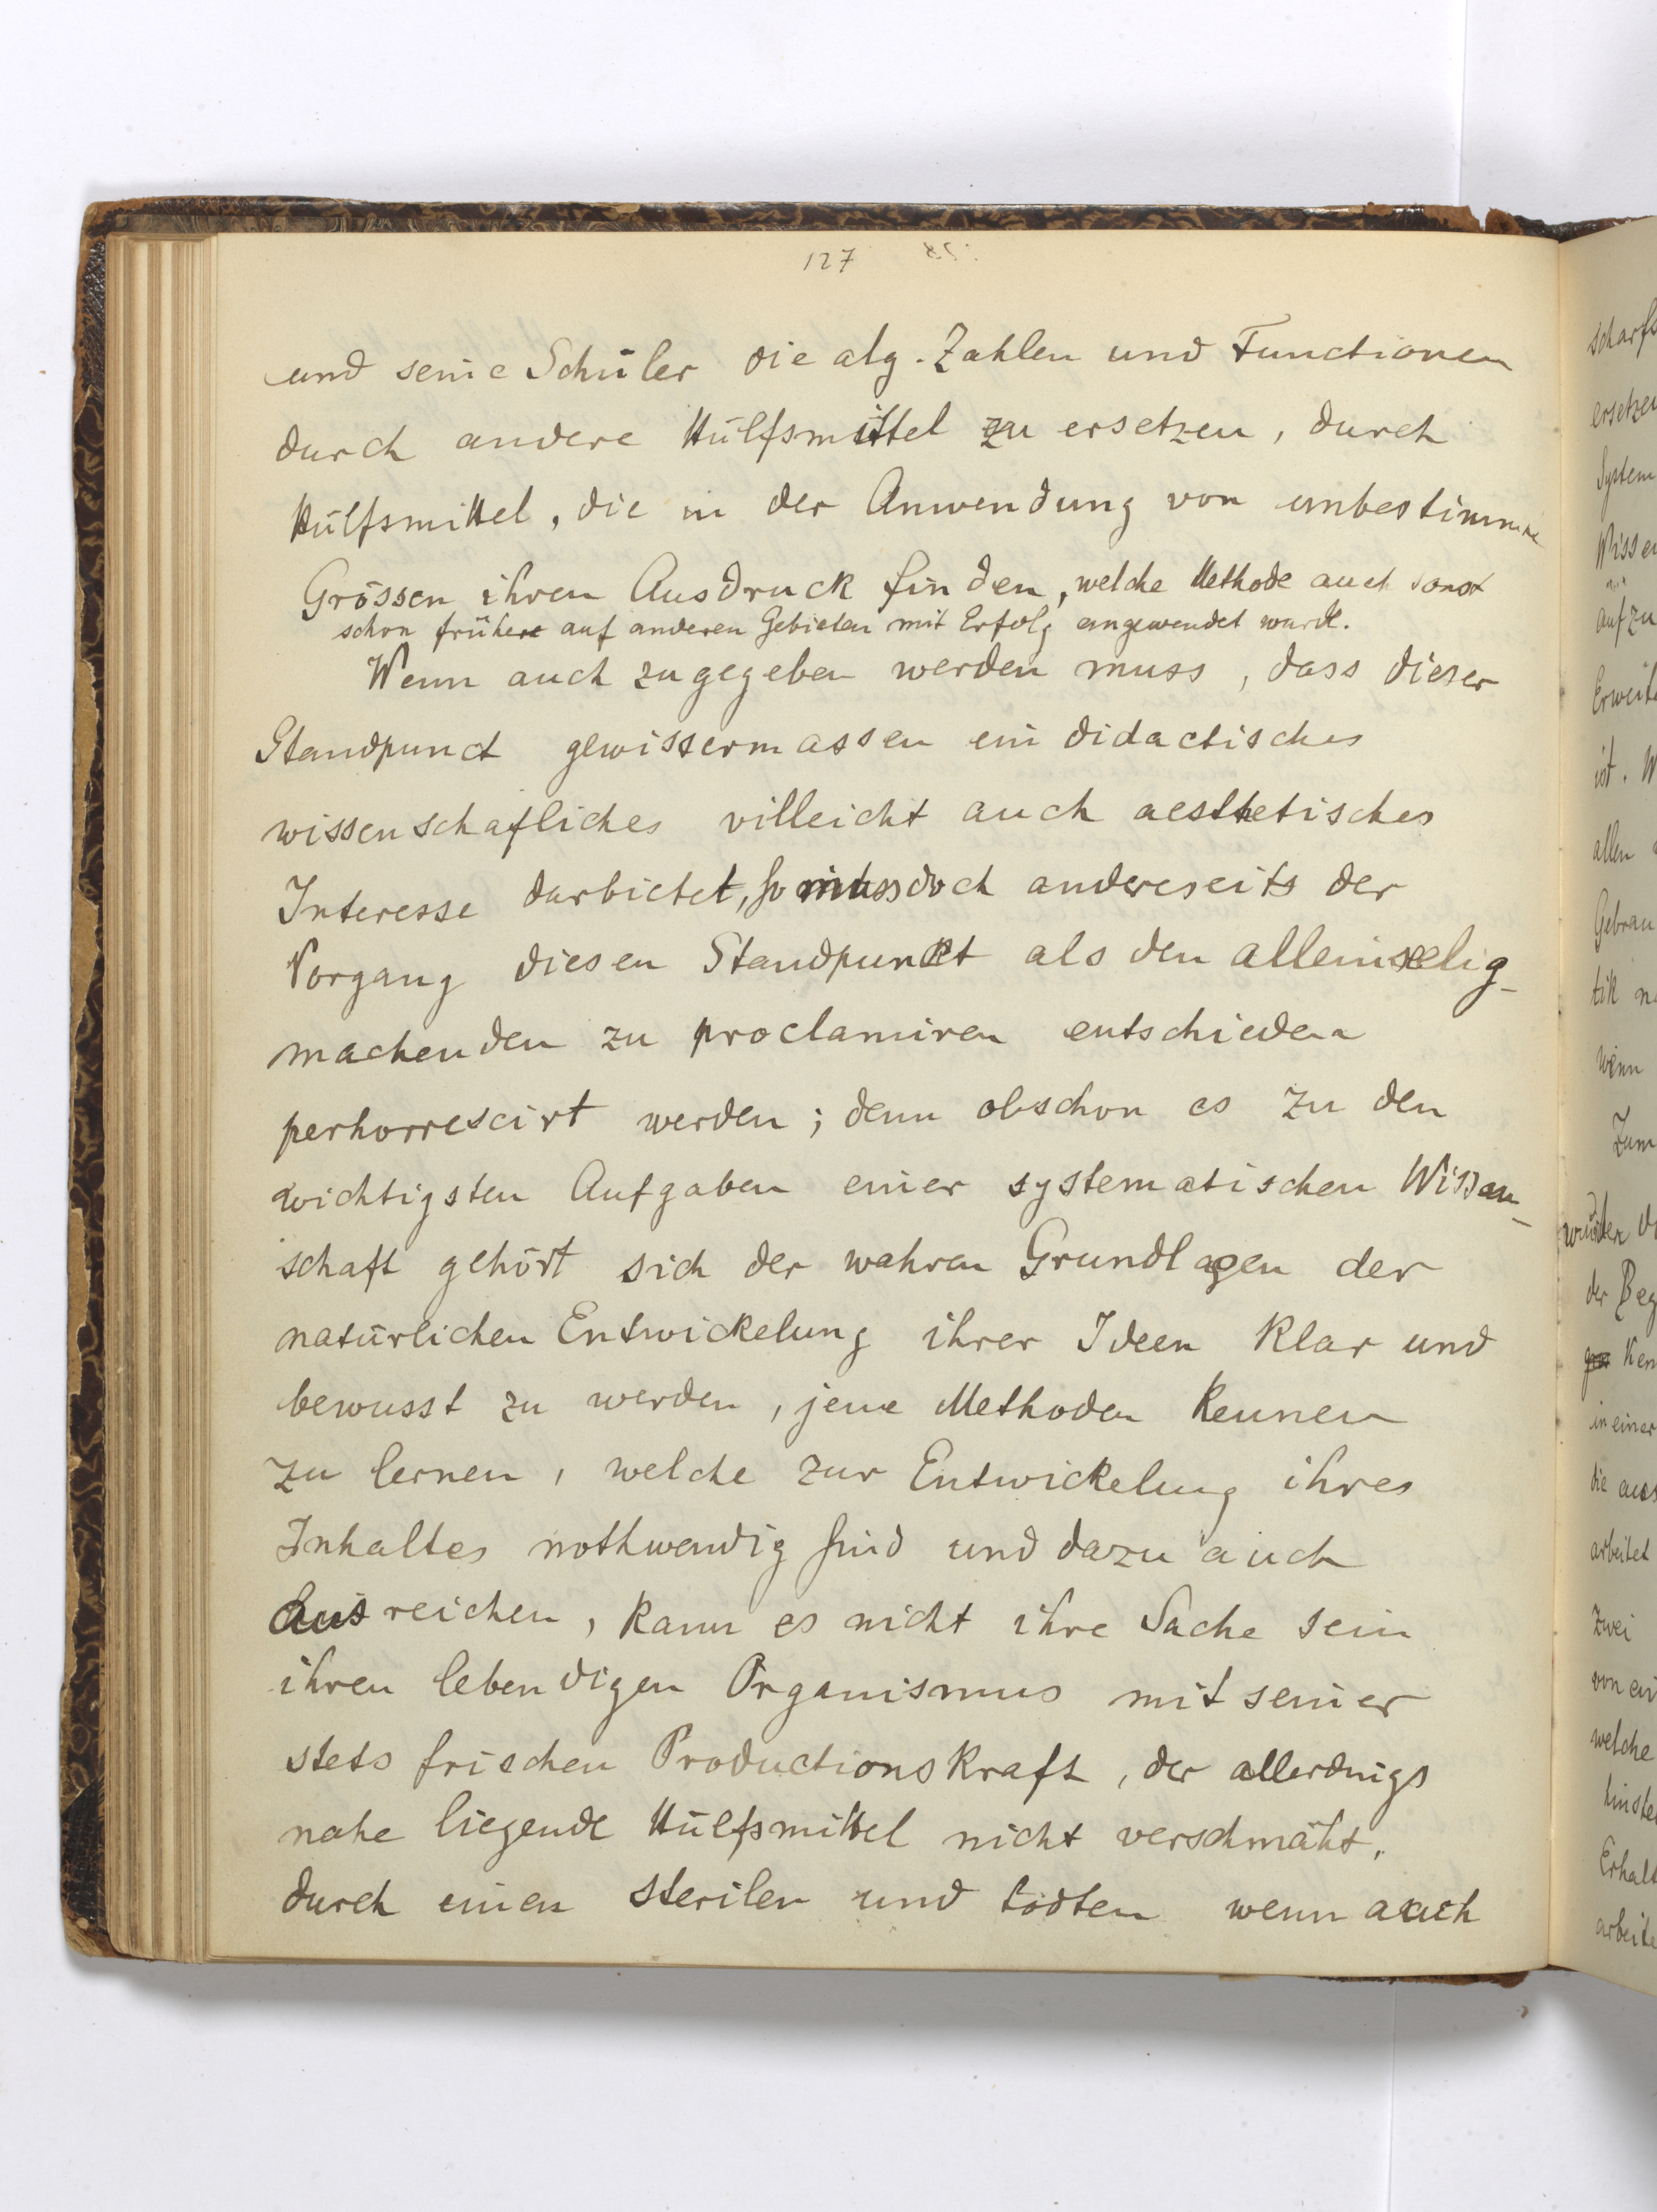 127
und seine Schüler die alg. Zahlen und Functionen
durch andere Hülfsmittel zu ersetzen, durch
Hülfsmittel, die in der Anwendung von unbestimmte
Grössen ihren Ausdruck finden, welche Methode auch sonst
schon früher auf anderen Gebieten mit Erfolg angewendet wurde.
Wenn auch zugegeben werden muss, dass dieser
Standpunct gewissermassen ein didactisches
wissenschafliches villeicht auch aesthetisches
Interesse darbietet, so muss doch andereseits der
Vorgang diesen Standpunkt als den alleinselig-
machenden zu proclamiren entschieden
perhorrescirt werden; denn obschon es zu den
wichtigsten Aufgaben einer systematischen Wissen-
schaft gehört sich der wahren Grundlagen der
natürlichen Entwickelung ihrer Ideen klar und
bewusst zu werden, jene Methoden kennen
zu lernen, welche zur Entwickelung ihres
Inhaltes nothwendig sind und dazu auch
ausreichen, kann es nicht ihre Sache sein
ihren lebendigen Organismus mit seiner
stets frischen Productionskraft, der allerdings
nahe liegende Hülfsmittel nicht verschmäht,
durch einen sterilen und todten wenn auch
scharfs
ersetzen
System
Wissen
aufzu
Erweite
ist. W
allen
Gebrau
tik
wenn
Zum
wurden
der Beg
Ken
in einer
die aus
arbeitet
zwei
von ei
welche
hinste
Erhalt
arbeite